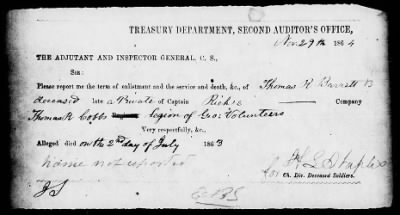 TREASURY DEPARTMENT, SECOND AUDITOR'S OFFICE,
Nov. 29th 1864
THE ADJUTANT AND INSPECTOR GENERAL, C. S.,
SIR:
Please report me the term of enlistment and the service and death, &c., of Thomas R Barrett B
deceased late a Private of Captain Rich's Company
Thomas R Cobbs Legion of Geo: Volunteers
Very respectfully, &c.,
Alleged died on the 2nd day of July 1863
name not reported
for Ch. Div. Deceased Soldiers.
JS